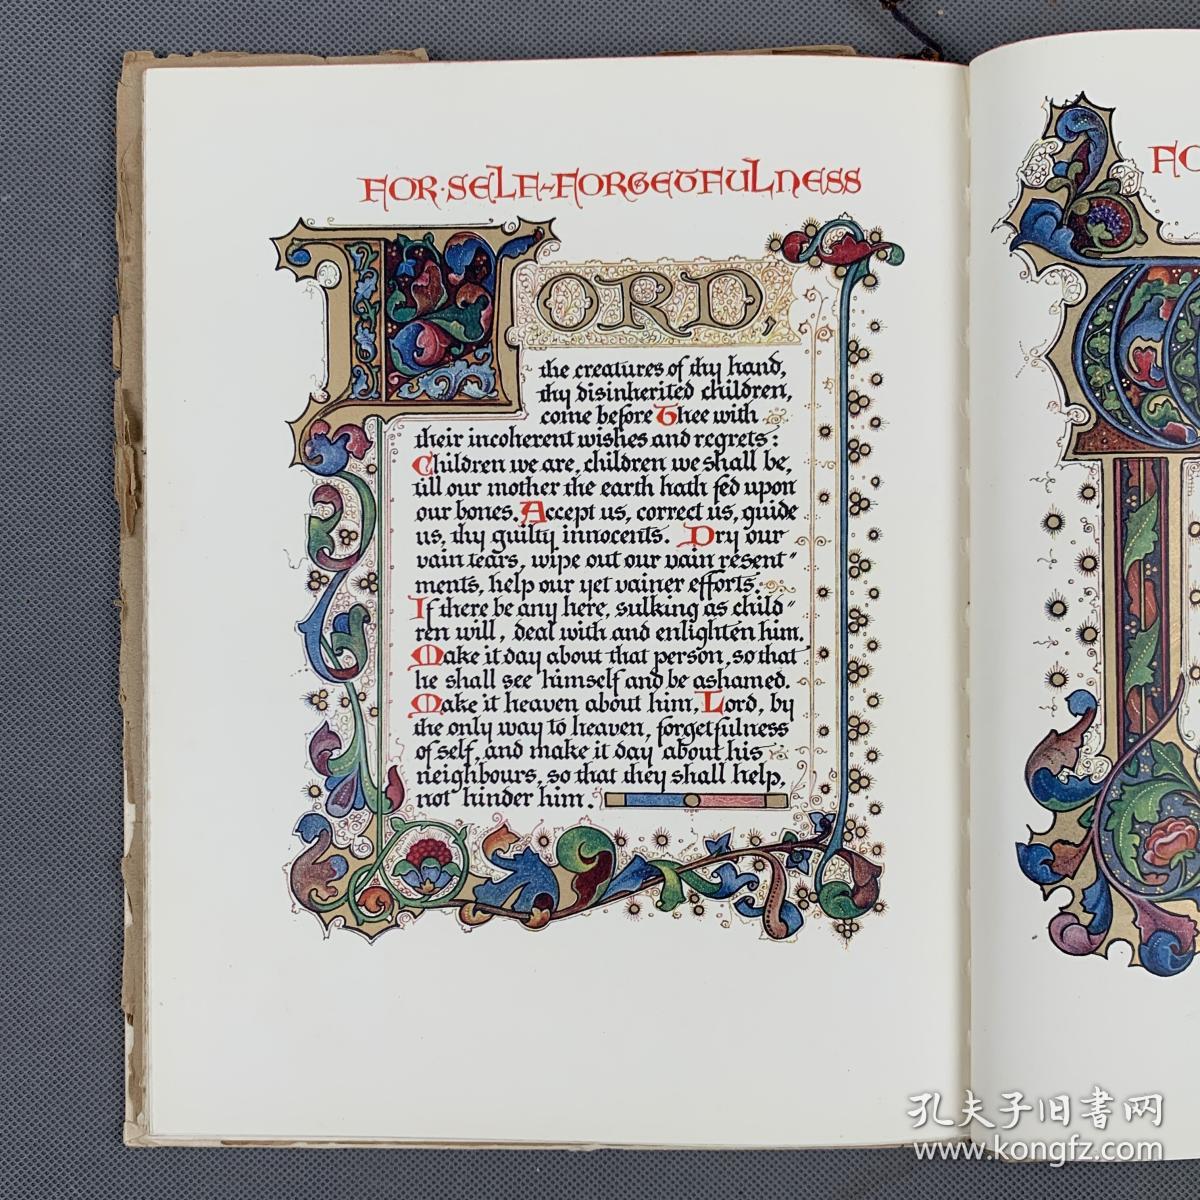 FOR·SELF-FORGETFULNESS
LORD,
the creatures of thy hand,
thy disinherited children,
come before Thee with
their incoherent wishes and regrets:
Children we are, children we shall be,
till our mother the earth hath fed upon
our bones. Accept us, correct us, guide
us, thy guilty innocents. Dry our
vain tears, wipe out our vain resent-
ments, help our yet vainer efforts.
If there be any here, sulking as child-
ren will, deal with and enlighten him.
Make it day about that person, so that
he shall see himself and be ashamed.
Make it heaven about him, Lord, by
the only way to heaven, forgetfulness
of self, and make it day about his
neighbours, so that they shall help,
not hinder him.
FO
孔夫子旧书网
www.kongfz.com